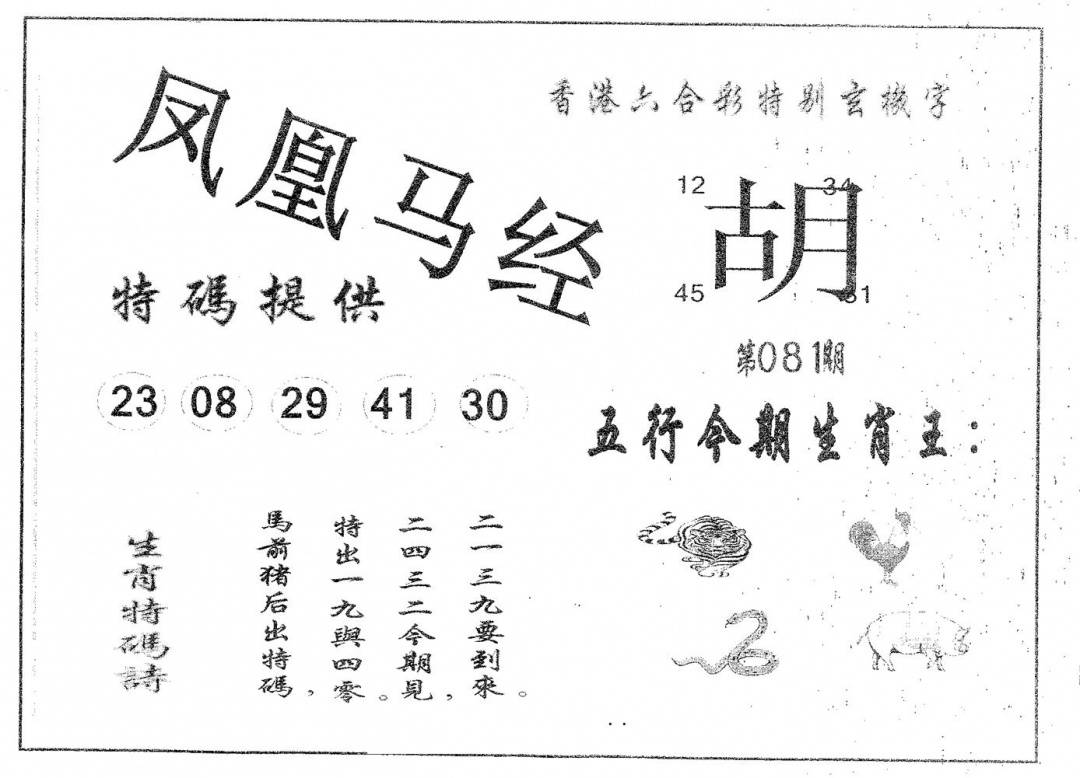 凤凰马经
特碼提供
23 08 29 41 30
香港六合彩特别玄機字
12 34
胡
45 31
第081期
五行今期生肖王：
生肖特碼詩
馬前猪后出特碼，
特出一九與四零。
二四三二今期見，
二一三九要到來。